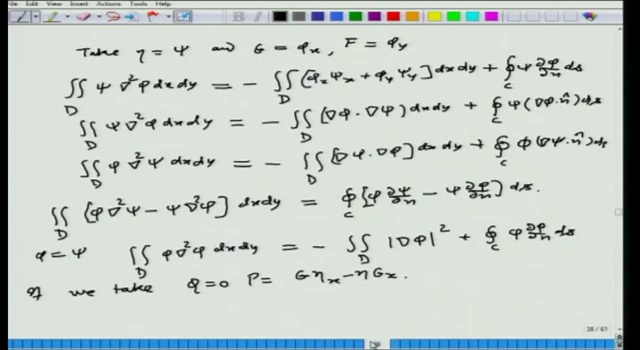 Take η = ψ and G = φₓ, F = φᵧ
∬_D ψ ∇²φ dxdy = - ∬_D [φₓψₓ + φᵧψᵧ] dxdy + ∮_C ψ ∂φ/∂n ds
∬_D ψ ∇²φ dxdy = - ∬_D (∇φ · ∇ψ) dxdy + ∮_C ψ (∇φ · n̂) ds
∬_D φ ∇²ψ dxdy = - ∬_D [∇ψ · ∇φ] dxdy + ∮_C φ (∇ψ · n̂) ds
∬_D [φ∇²ψ - ψ∇²φ] dxdy = ∮_C [φ ∂ψ/∂n - ψ ∂φ/∂n] ds.
φ = ψ ∬_D φ ∇²φ dxdy = - ∬_D |∇φ|² + ∮_C φ ∂φ/∂n ds
If we take Q = 0 P = Gηₓ - ηGₓ.
28 / 61